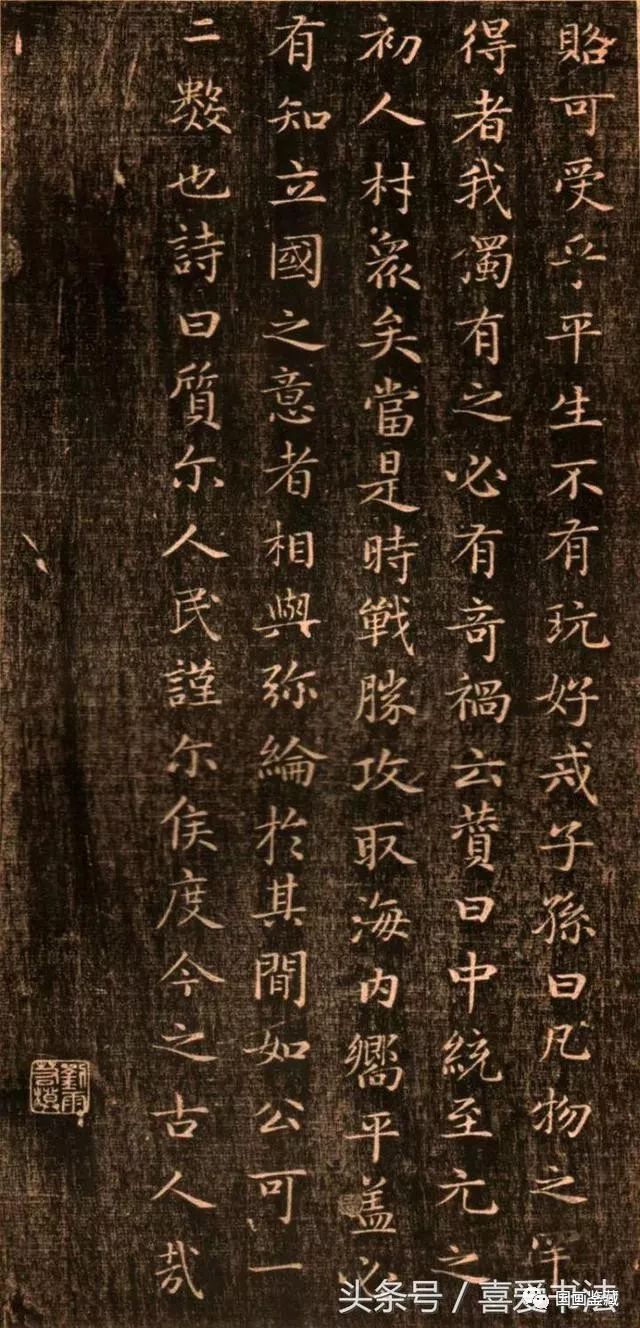 賂可受乎平生不有玩好戒子孫曰凡物之罕
得者我獨有之必有奇禍云贊曰中統至元之
初人材衆矣當是時戰勝攻取海内嚮平蓋必
有知立國之意者相與弥綸於其間如公可一
二數也詩曰質尓人民謹尓侯度今之古人哉
头条号 / 喜爱书法
国画鉴藏